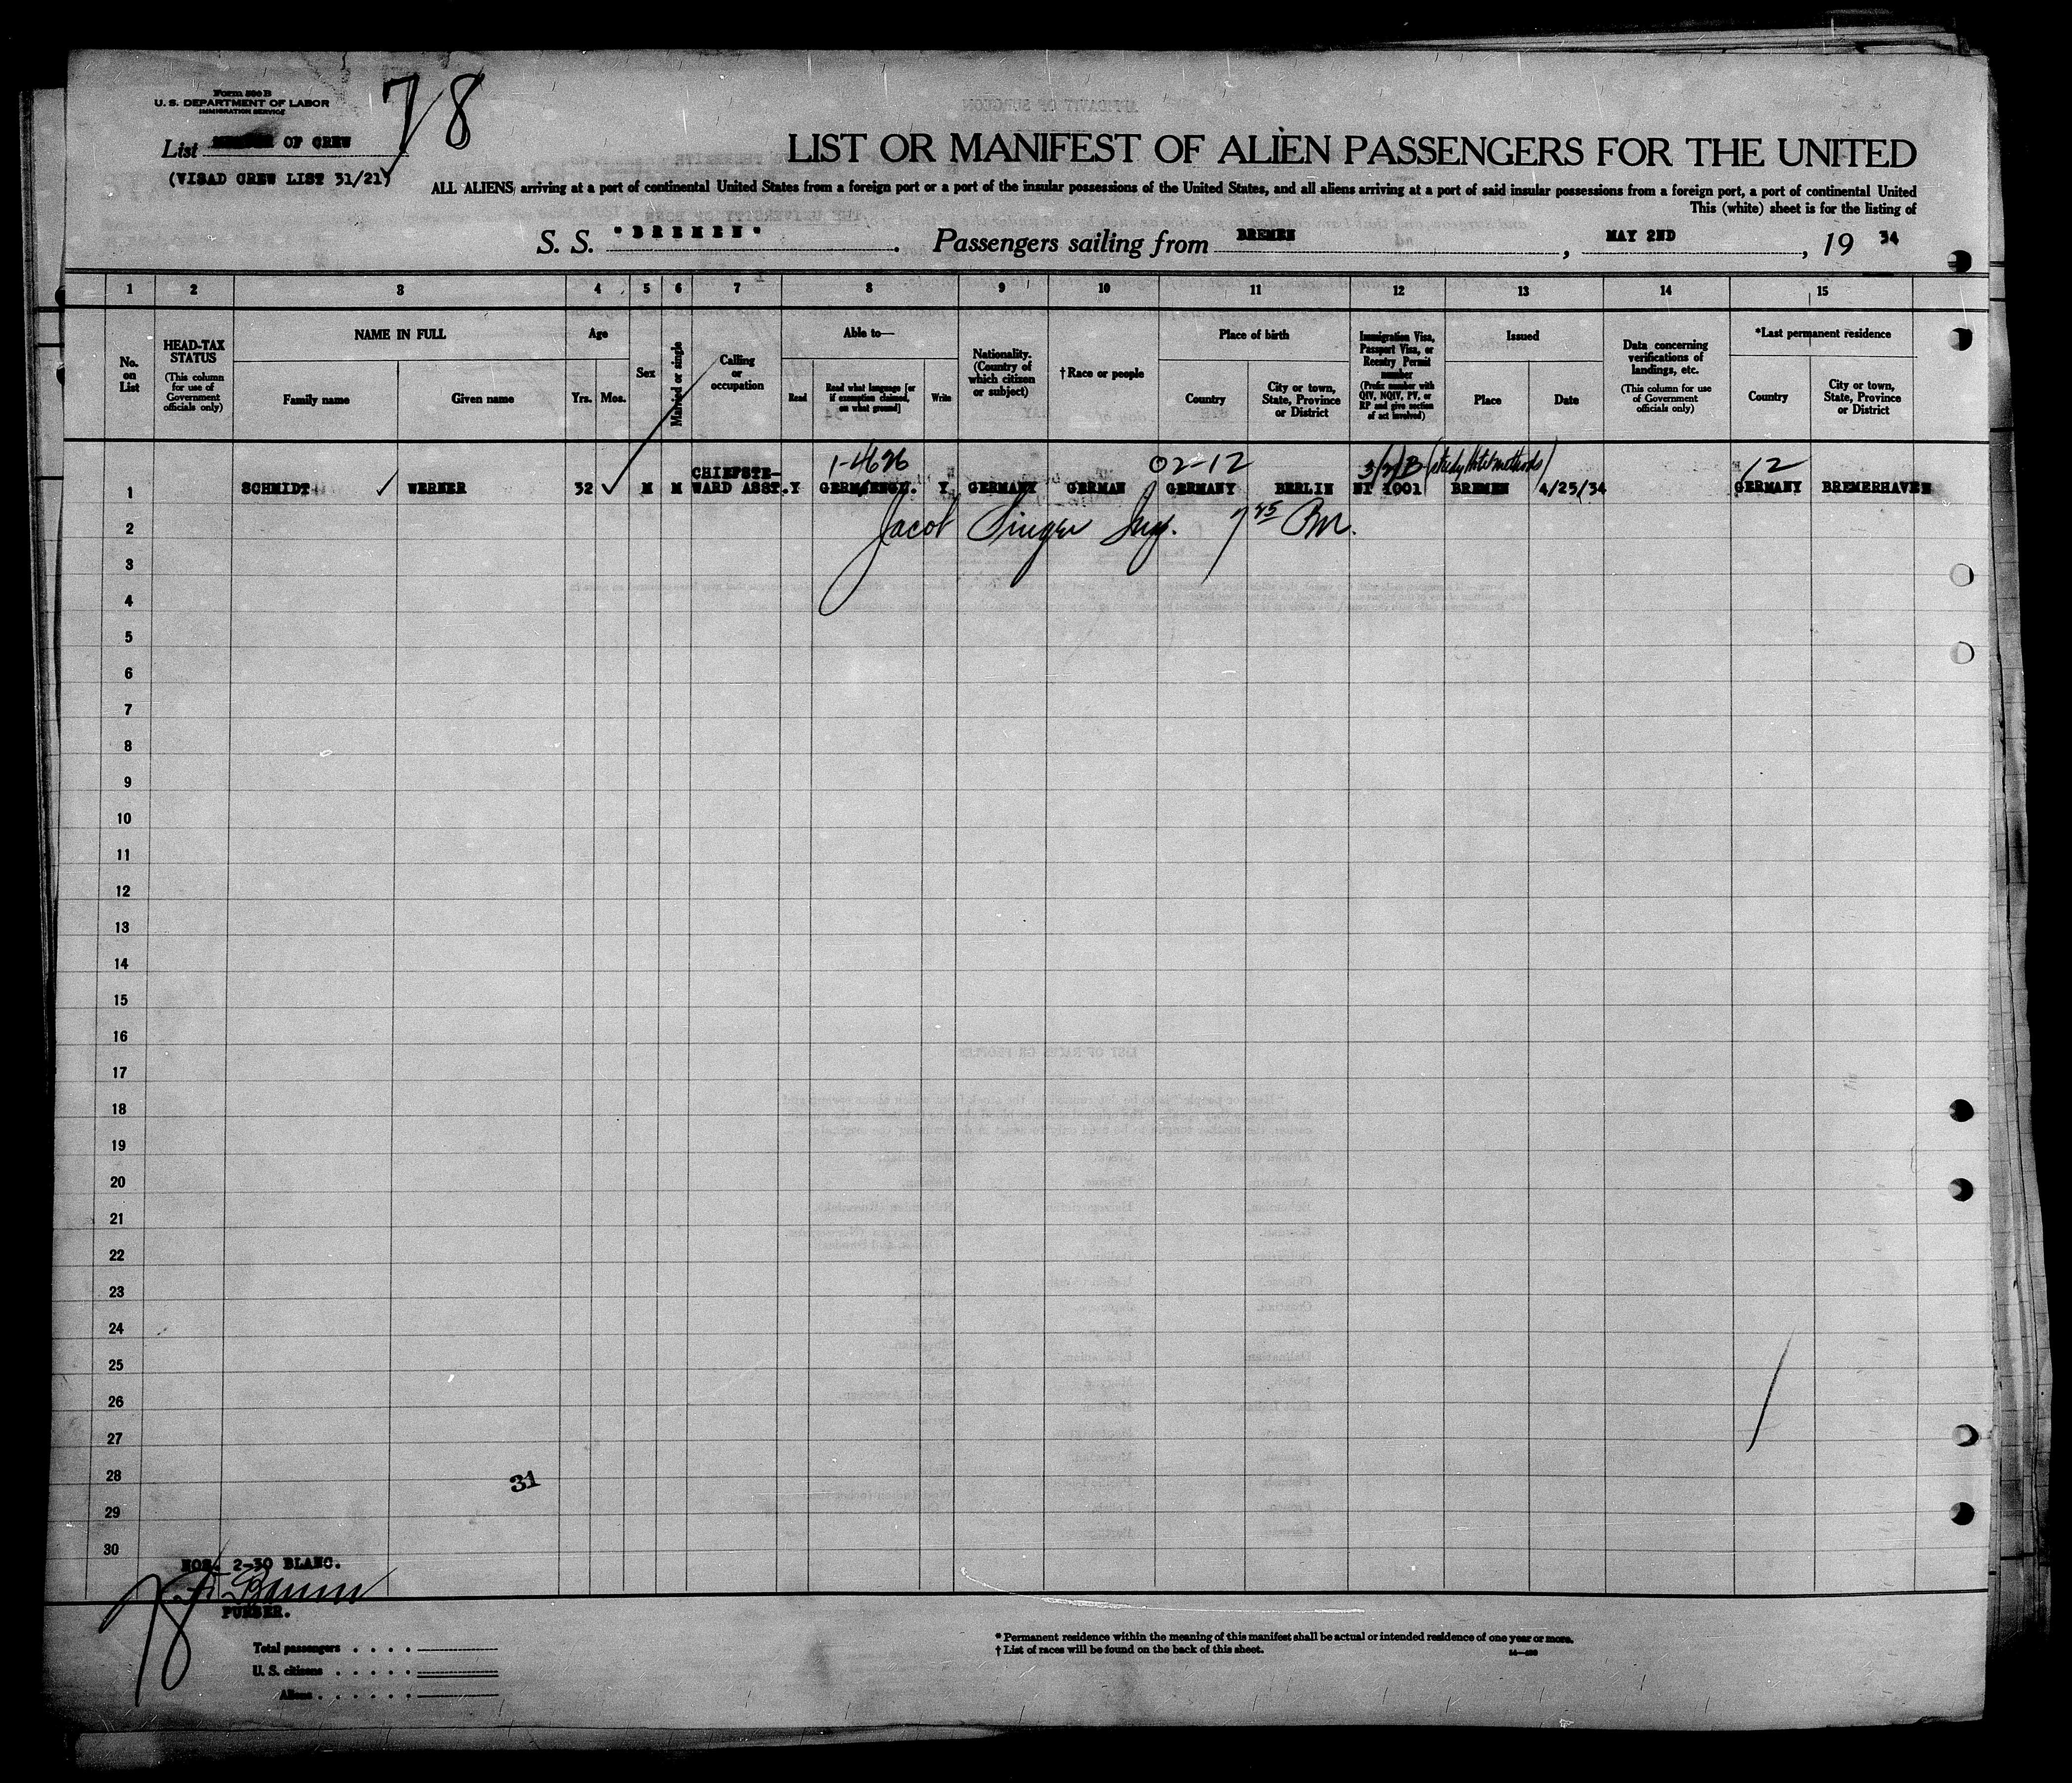 Form 500 B
U. S. DEPARTMENT OF LABOR
IMMIGRATION SERVICE
78
List OF CREW
(VISAD CREW LIST 31/21)
LIST OR MANIFEST OF ALIEN PASSENGERS FOR THE UNITED
ALL ALIENS arriving at a port of continental United States from a foreign port or a port of the insular possessions of the United States, and all aliens arriving at a port of said insular possessions from a foreign port, a port of continental United
This (white) sheet is for the listing of
S. S. "BREMEN". Passengers sailing from BREMEN, MAY 2ND, 19 34
1 2 3 4 5 6 7 8 9 10 11 12 13 14 15
No. on List
HEAD-TAX STATUS (This column for use of Government officials only)
NAME IN FULL
Family name
Given name
Age
Yrs. Mos.
Sex
Married or single
Calling or occupation
Able to—
Read
Read what language [or if exemption claimed, on what ground]
Write
Nationality. (Country of which citizen or subject)
†Race or people
Place of birth
Country
City or town, State, Province or District
Immigration Visa, Passport Visa, or Reentry Permit number (Prefix number with QIV, NQIV, PV, or RP and give section of act involved)
Issued
Place
Date
Data concerning verifications of landings, etc. (This column for use of Government officials only)
*Last permanent residence
Country
City or town, State, Province or District
1-4626 02-12 3/2/B (study Hotel methods) 12
1 SCHMIDT WERNER 32 M M CHIEFSTE-WARD ASST. Y GERM/ENGL. Y GERMANY GERMAN GERMANY BERLIN 1001 BREMEN 4/25/34 GERMANY BREMERHAVEN
2 Jacob Singer Insp. 7 25 PM.
3
4
5
6
7
8
9
10
11
12
13
14
15
16
17
18
19
20
21
22
23
24
25
26
27
28 31
29
30
NOS. 2-30 BLANC.
PURSER.
78
Total passengers . . . .
U. S. citizens . . . . .
Aliens . . . . . .
* Permanent residence within the meaning of this manifest shall be actual or intended residence of one year or more.
† List of races will be found on the back of this sheet.